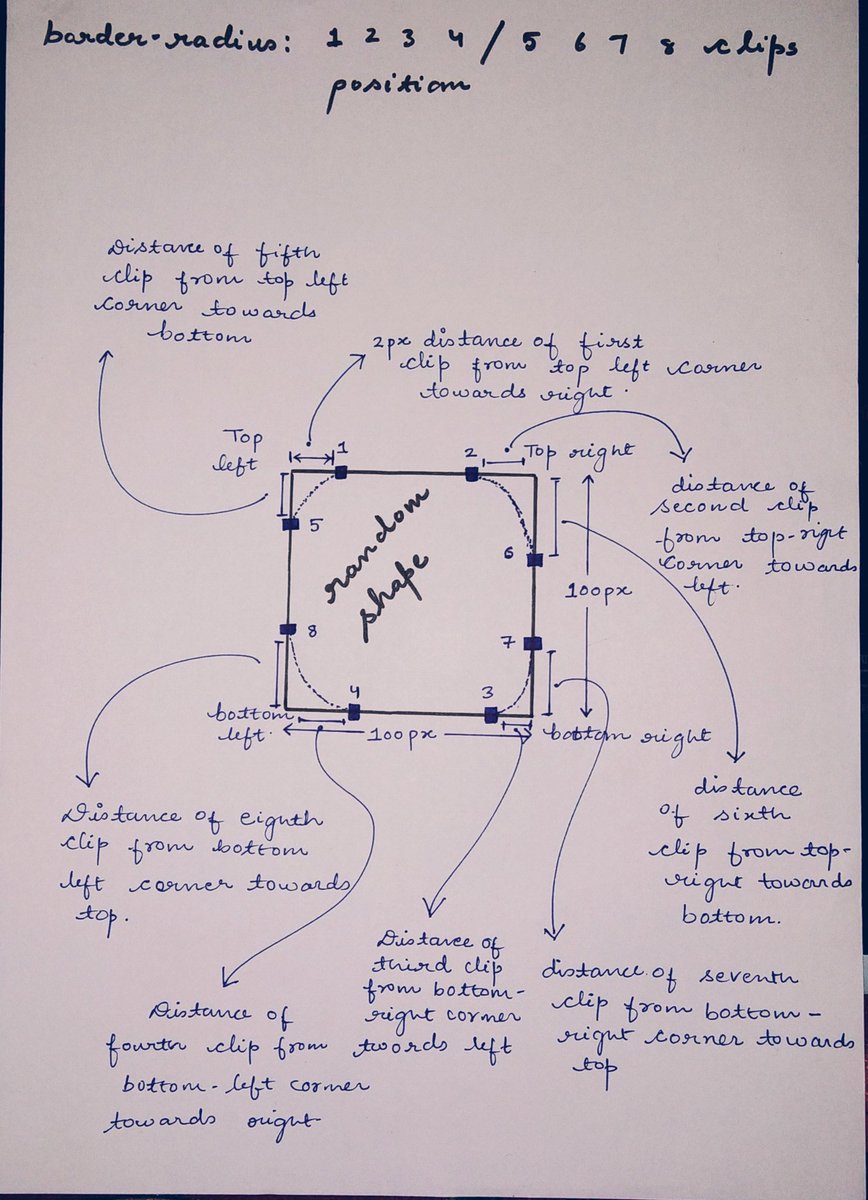 barder-radius: 1 2 3 4 / 5 6 7 8 clips
position
Distance of fifth
clip from top left
corner towards
bottom
2px distance of first
clip from top left corner
towards right.
Top
left
1
2
Top right
distance of
second clip
from top-right
corner towards
left.
5
random
shape
6
100px
8
7
4
3
bottom
left.
100px
bottom right
Distance of eighth
clip from bottom
left corner towards
top.
distance
of sixth
clip from top-
right towards
bottom.
Distance of
third clip
from bottom-
right corner
twords left
distance of seventh
clip from bottom-
right corner towards
top
Distance of
fourth clip from
bottom-left corner
towards right